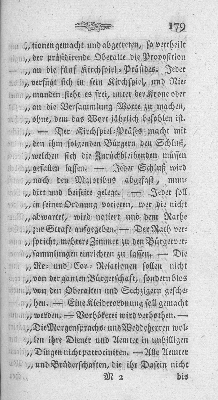 179
„tionen gemacht und abgetreten, so vertheilt
„der präsidirende Oberalte die Proposition
„an die fünf Kirchspiel-Präsides. Jeder
„verfügt sich in sein Kirchspiel, und Nie-
„manden steht es frei, unter der Krone oder
„an die Versammlung Worte zu machen,
„ohne, dem das Wort jährlich befohlen ist.
„— Der Kirchspiel-Präses macht mit
„den ihm folgenden Bürgern den Schluß,
„welchen sich die Zurückbleibenden müssen
„gefallen lassen. — Jeder Schluß wird
„nach den Majoribus abgefaßt, mun-
„dirt und beiseite gelegt. — Jeder soll
„in seiner Ordnung votiren, wer die nicht
„abwartet, wird notirt und dem Rathe
„zur Strafe aufgegeben. — Der Rath ver-
„spricht, mehrere Zimmer zu den Bürgerver-
„sammlungen einrichten zu lassen. — Die
„Re- und Cor-Relationen sollen nicht
„von der ganzen Bürgerschaft, sondern blos
„von den Oberalten und Sechzigern gesche-
„hen. — Eine Kleiderordnung soll gemacht
„werden. — Vorhökerei wird verbothen. —
„Die Morgensprachs- und Weddeherren wol-
„len ihre Diener und Aemter in unbilligen
„Dingen nicht patrociniren. — Alle Aemter
„und Brüderschaften, die ihr Dasein nicht
M 2
bis